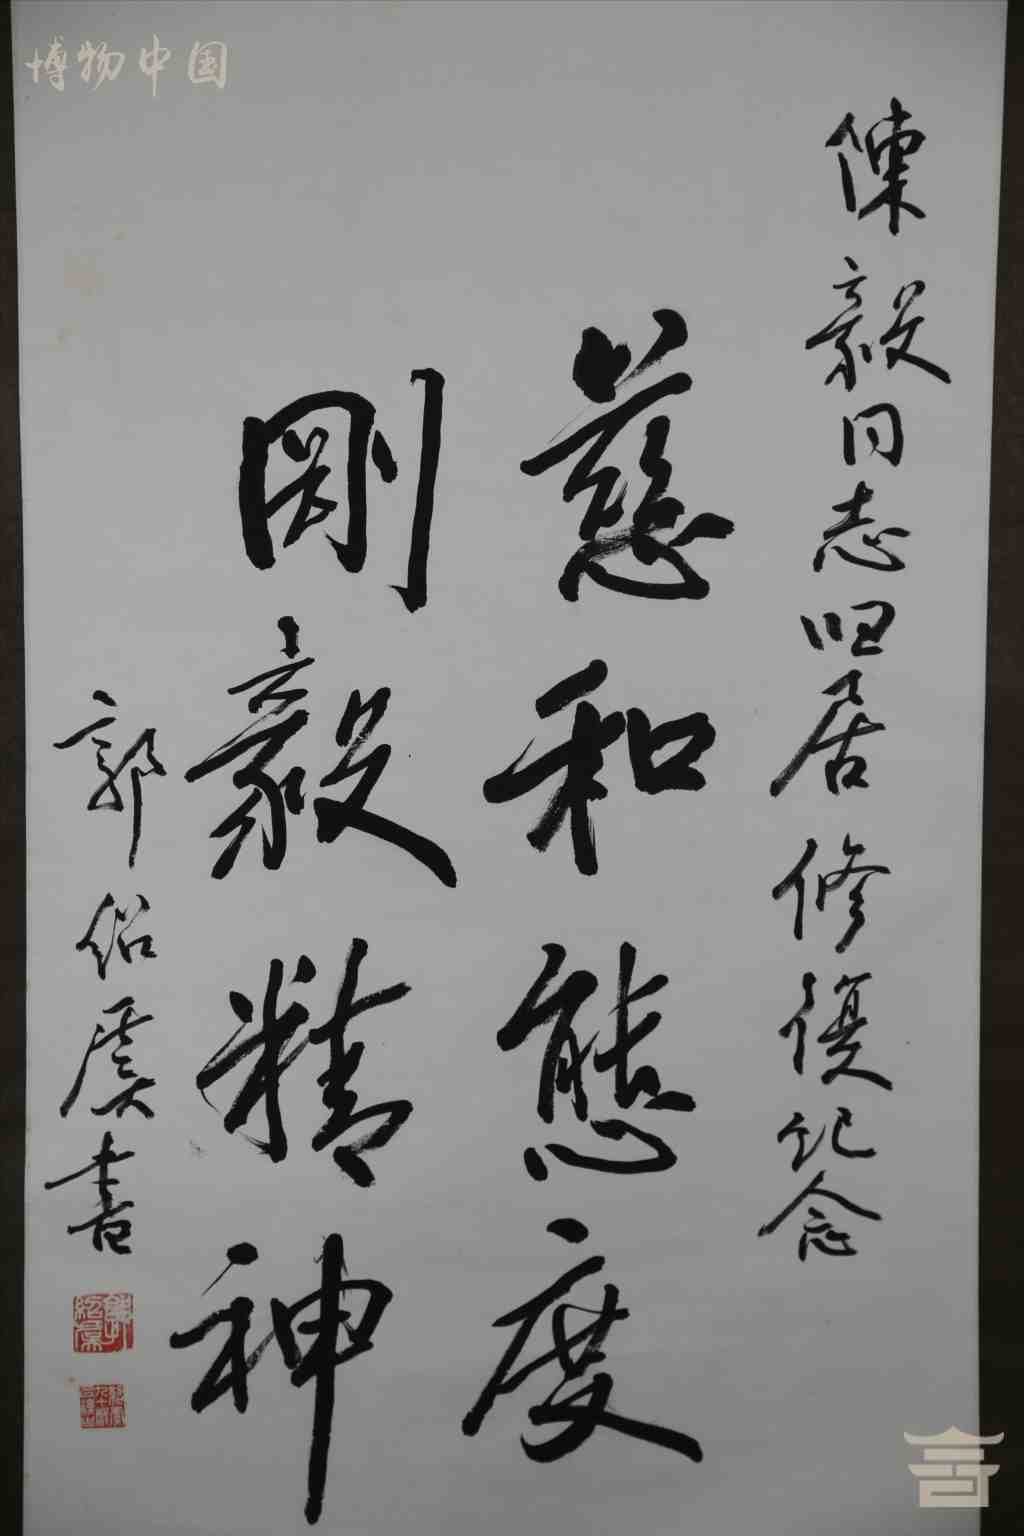 博物中国
陳毅同志旧居修復纪念
慈和態度
剛毅精神
郭绍虞書
郭紹虞